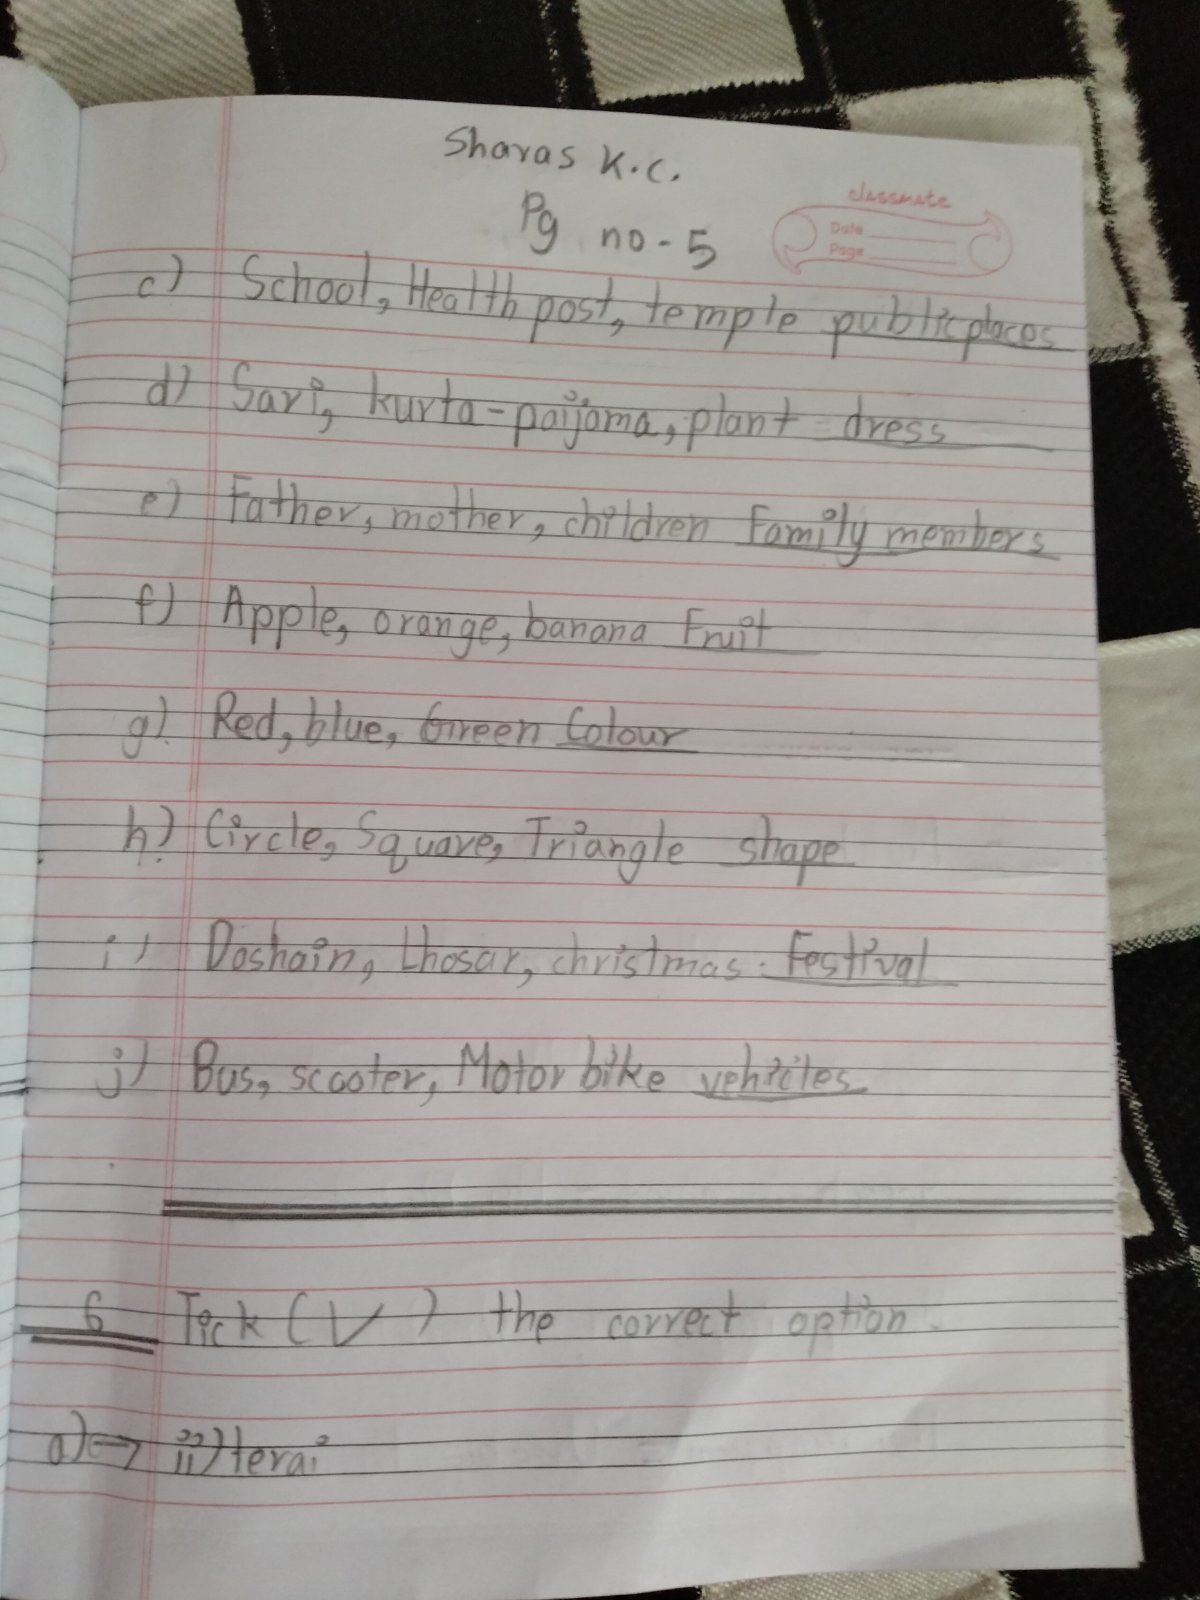 Sharas K.C.
Pg no-5
classmate
Date
Page
c) School, Health post, temple public places
d) Sari, kurta-paijama, plant = dress
e) Father, mother, children Family members
f) Apple, orange, banana Fruit
g) Red, blue, Green Colour
h) Circle, Square, Triangle shape
i) Dashain, Lhosar, christmas. Festival
j) Bus, scooter, Motor bike vehicles
6 Tick (✓) the correct option
a) → ii) terai